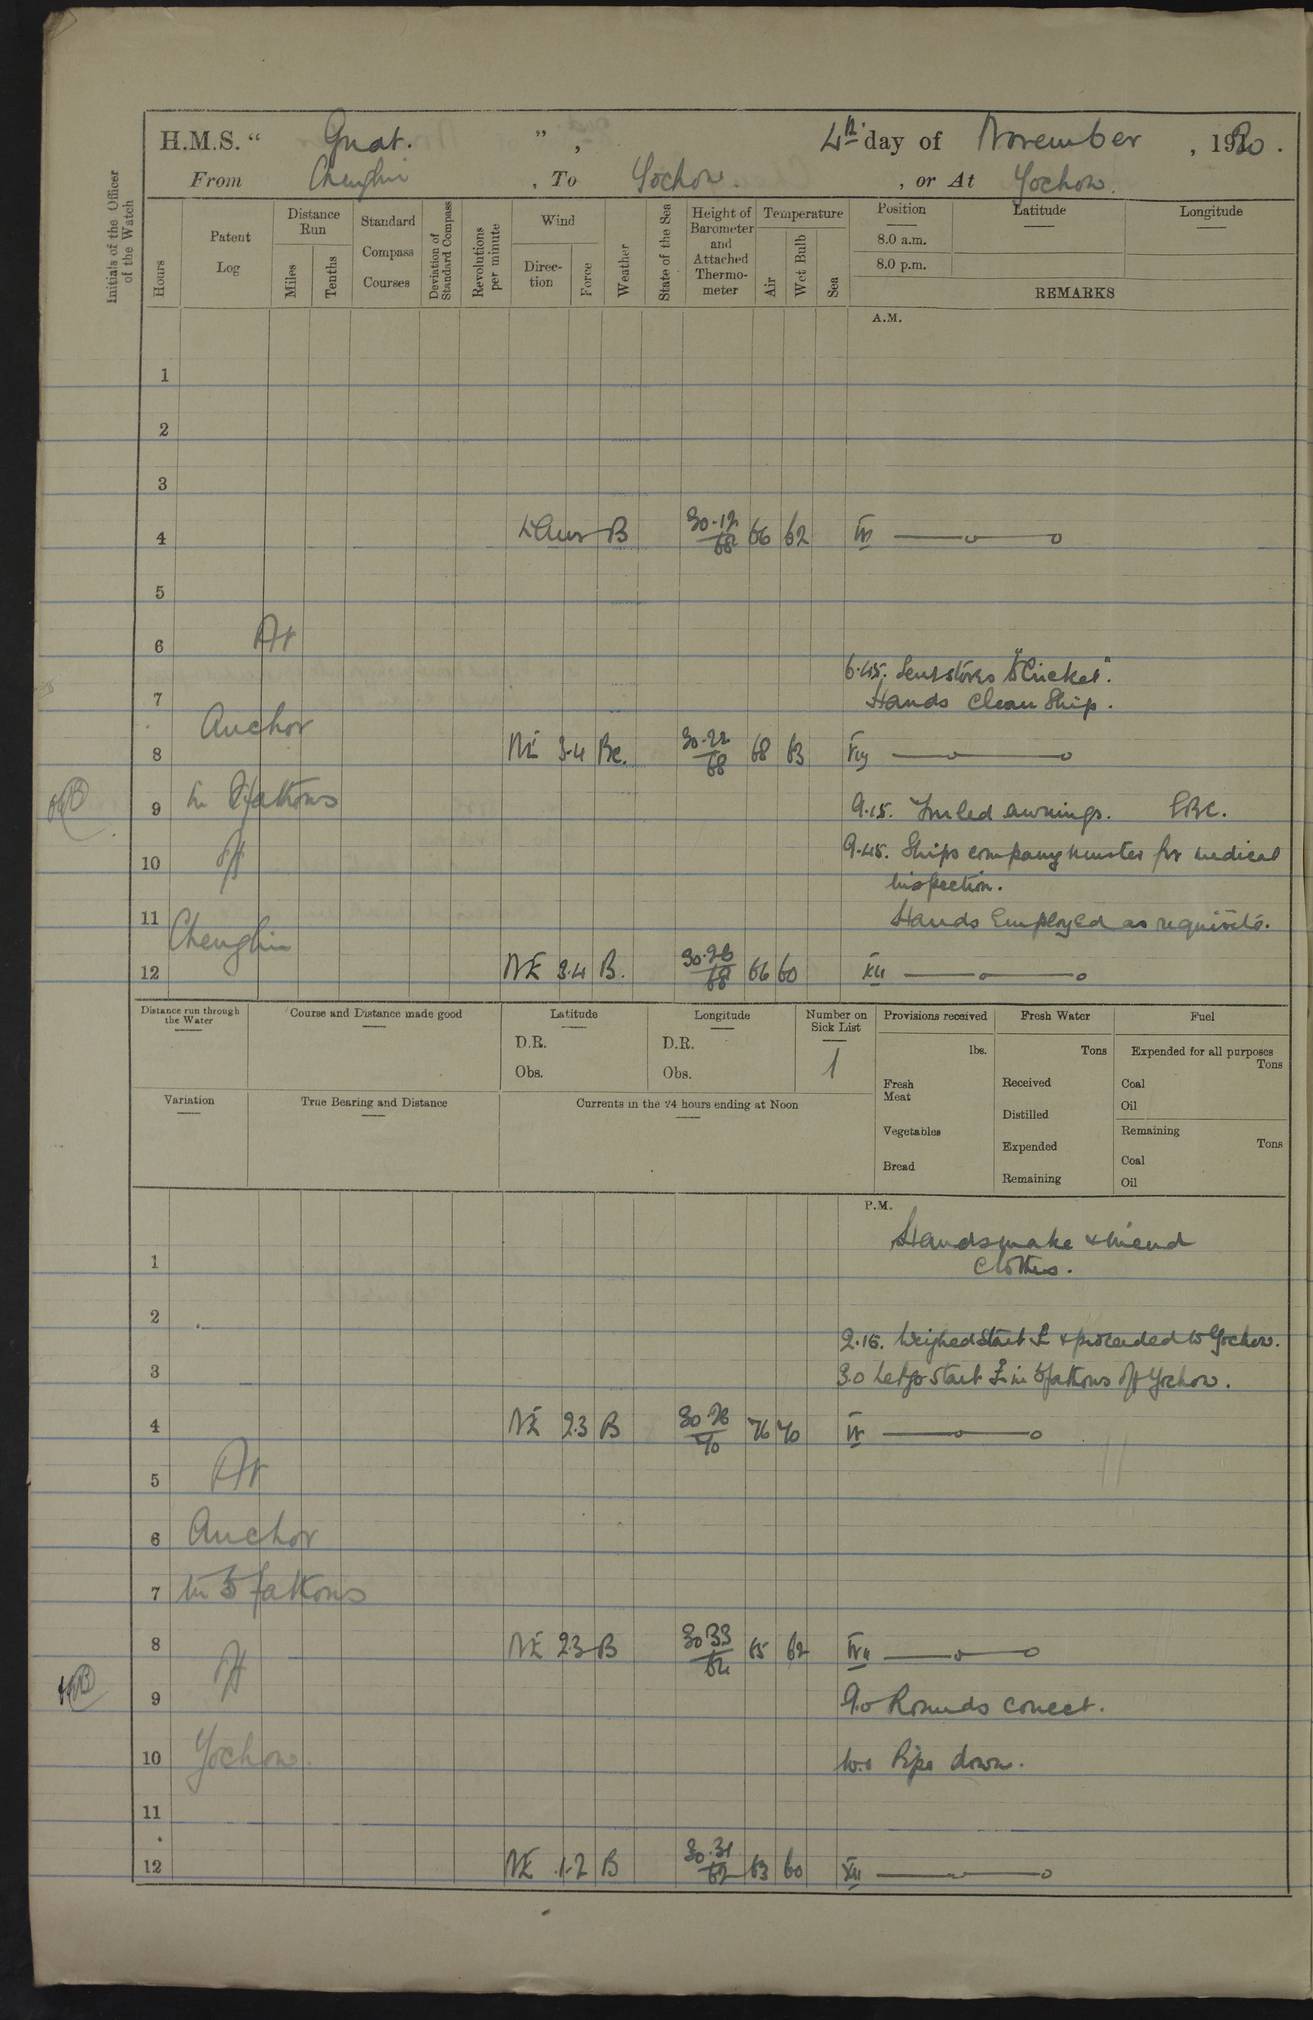 H.M.S. "Gnat.", 4th day of November, 1920.
From Chenglin, To Yochow., or At Yochow.
Initials of the Officer of the Watch
Hours
Patent Log
Distance Run
Miles
Tenths
Standard Compass Courses
Deviation of Standard Compass
Revolutions per minute
Wind
Direction
Force
Weather
State of the Sea
Height of Barometer and Attached Thermometer
Temperature
Air
Wet Bulb
Sea
Position
Latitude
Longitude
8.0 a.m.
8.0 p.m.
REMARKS
A.M.
1
2
3
4 B 30.12 68 66 62 IV
5
6 At
6.45. Sent stores "Cricket".
7 Hands clean Ship.
Anchor
8 NE 3.4 Bc. 30.22 68 68 63 VIII
9 In fathoms 9.15. Furled awnings.
10 off 9.45. Ships company muster for medical
inspection.
11 Hands Employed as requisite.
Chenglin
12 NE 3.4 B. 30.26 68 66 60 XII
Distance run through the Water
Course and Distance made good
Latitude
D.R.
Obs.
Longitude
D.R.
Obs.
Number on Sick List
1
Provisions received
lbs.
Fresh Meat
Vegetables
Bread
Fresh Water
Tons
Received
Distilled
Expended
Remaining
Fuel
Expended for all purposes
Tons
Coal
Oil
Remaining
Tons
Coal
Oil
Variation
True Bearing and Distance
Currents in the 24 hours ending at Noon
P.M.
Hands make & mend
1 clothes.
2
2.15. Weighed Starb & proceeded to Yochow.
3 3.0 Let go Starb in 5 fathoms off Yochow.
4 NE 2.3 B 30.26 70 76 70 IV
5 At
6 Anchor
7 In 5 fathoms
8 NE 2.3 B 30.33 64 65 62 VIII
off
9 9.0 Rounds correct.
10 Yochow. 10.0 Pipe down.
11
12 NE 1.2 B 30.31 62 63 60 XII